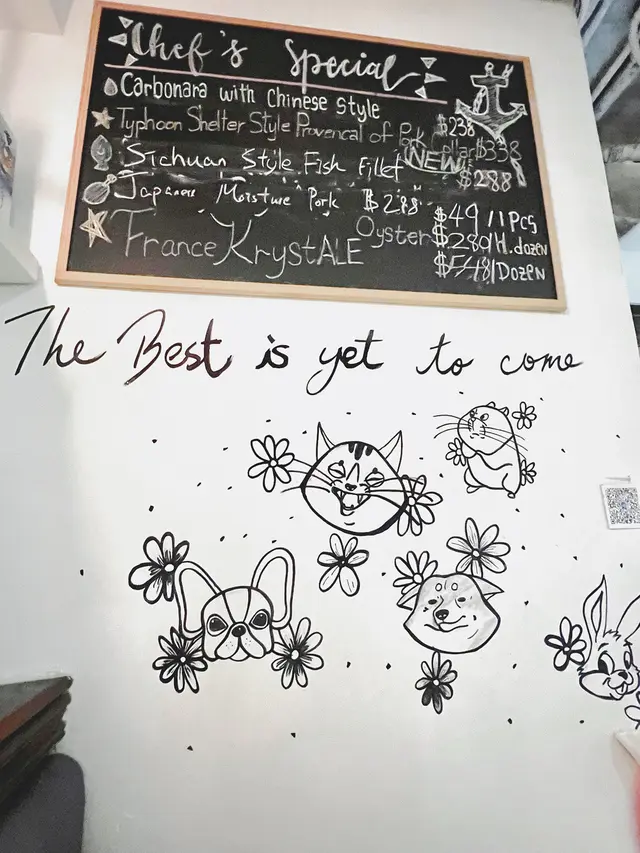 Chef's Special
Carbonara with Chinese Style $238
Typhoon Shelter Style Provencal of Pork Collar $338
Sichuan Style Fish Fillet NEW!! $288
Japanese Moisture Pork $288
France KrystALE Oyster $49/1Pcs
$289/H.dozen
$548/Dozen
The Best is yet to come